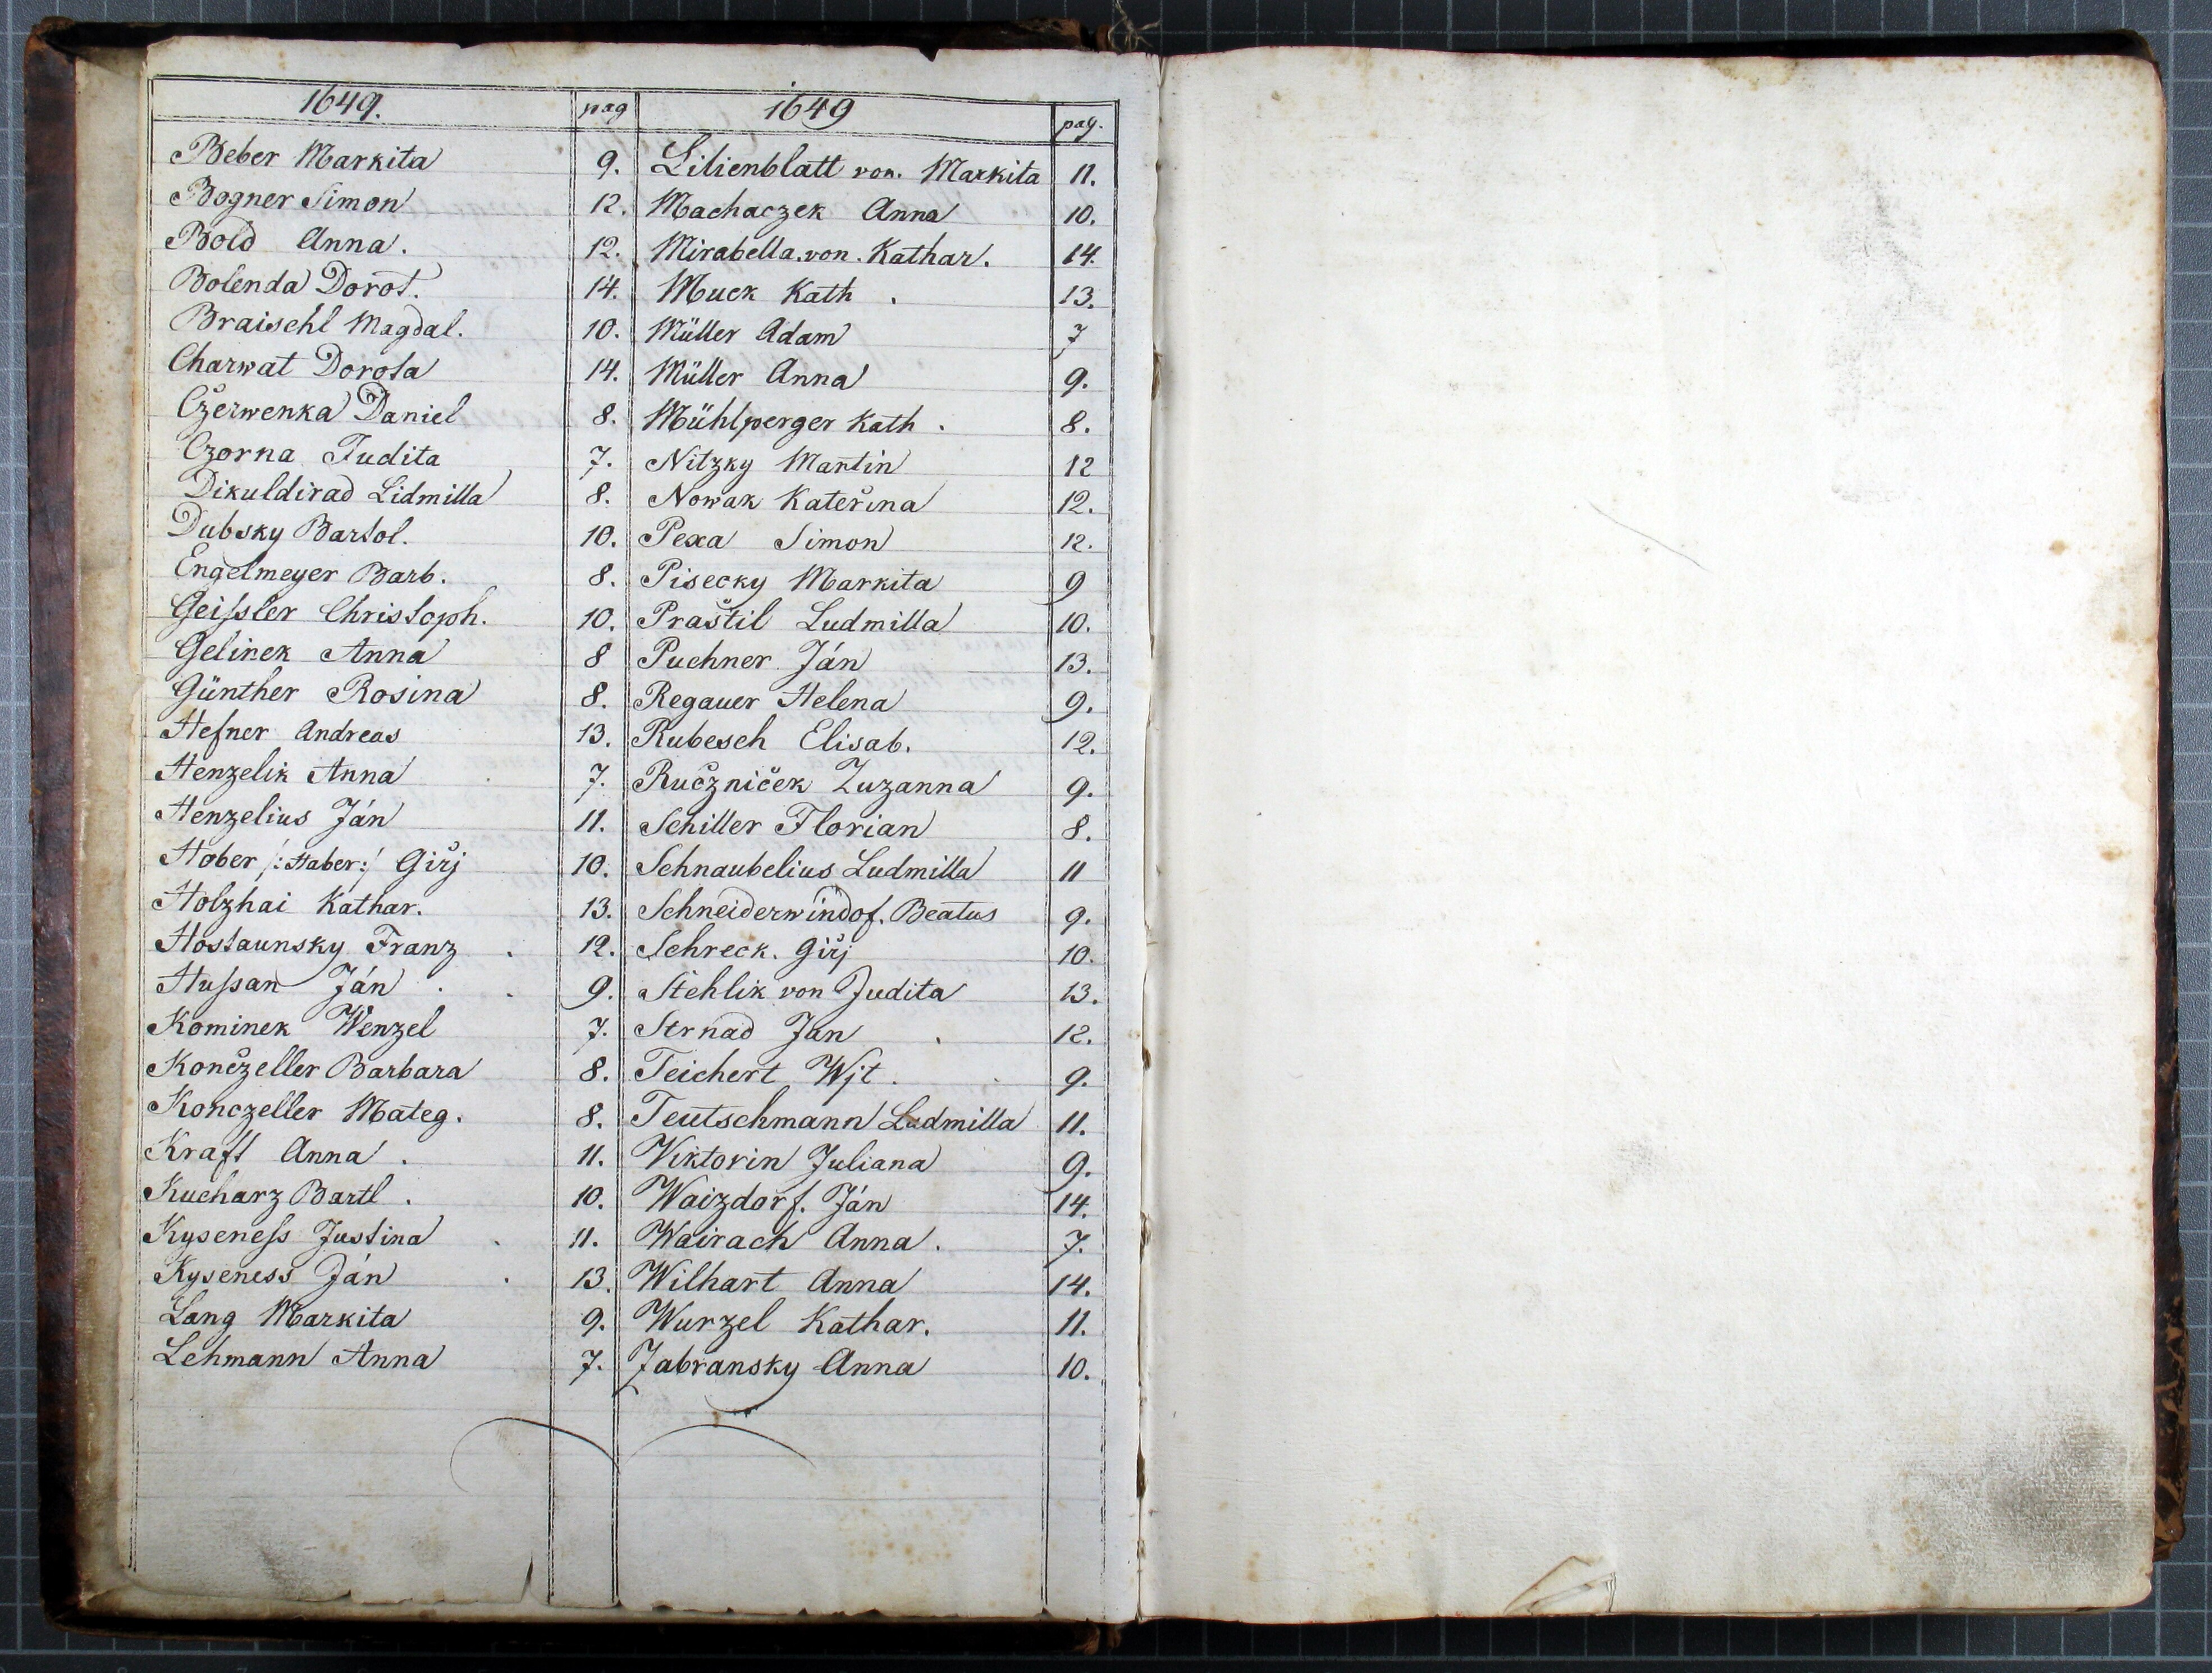 1649. pag
Beber Markita 9.
Bogner Simon 12.
Bold Anna. 12.
Bolenda Dorot. 14.
Braischl Magdal. 10.
Charwat Dorota 14.
Cžerwenka Daniel 8.
Czorna Judita 7.
Dikuldirad Lidmilla 8.
Dubsky Bartol. 10.
Engelmeyer Barb. 8.
Geiſsler Christoph. 10.
Gelinek Anna 8
Günther Rosina 8.
Hefner Andreas 13.
Henzelik Anna 7.
Henzelius Ján 11.
Hober /:Haber:/ Giřj 10.
Holzhai Kathar. 13.
Hostaunsky Franz . 12.
Huſsan Ján . . 9.
Kominek Wenzel 7.
Končzeller Barbara 8.
Konczeller Mateg. 8.
Kraft Anna . 11.
Kucharz Bartl . 10.
Kyseneſs Justina . 11.
Kyseness Ján . 13.
Lang Markita 9.
Lehmann Anna 7.
1649 pag.
Lilienblatt von. Markita 11.
Machaczek Anna 10.
Mirabella. von. Kathar. 14.
Muck Kath . 13.
Müller Adam 7
Müller Anna 9.
Mühlperger Kath . 8.
Nitzky Martin 12
Nowak Kateřina 12.
Pexa Simon 12.
Pisecky Markita 9
Praštil Ludmilla 10.
Puchner Ján 13.
Regauer Helena 9.
Rubesch Elisab. 12.
Ručzniček Zuzanna 9.
Schiller Florian 8.
Schnaubelius Ludmilla 11
Schneiderwindof. Beatus 9.
Schreck. Giřj 10.
Stehlik von Judita 13.
Strnad Jan . 12.
Teichert Wjt . 9.
Teutschmann Ludmilla 11.
Viktorin Juliana 9.
Waizdorf. Ján 14.
Wairach Anna . 7.
Wilhart Anna 14.
Wurzel Kathar. 11.
Zabransky Anna 10.